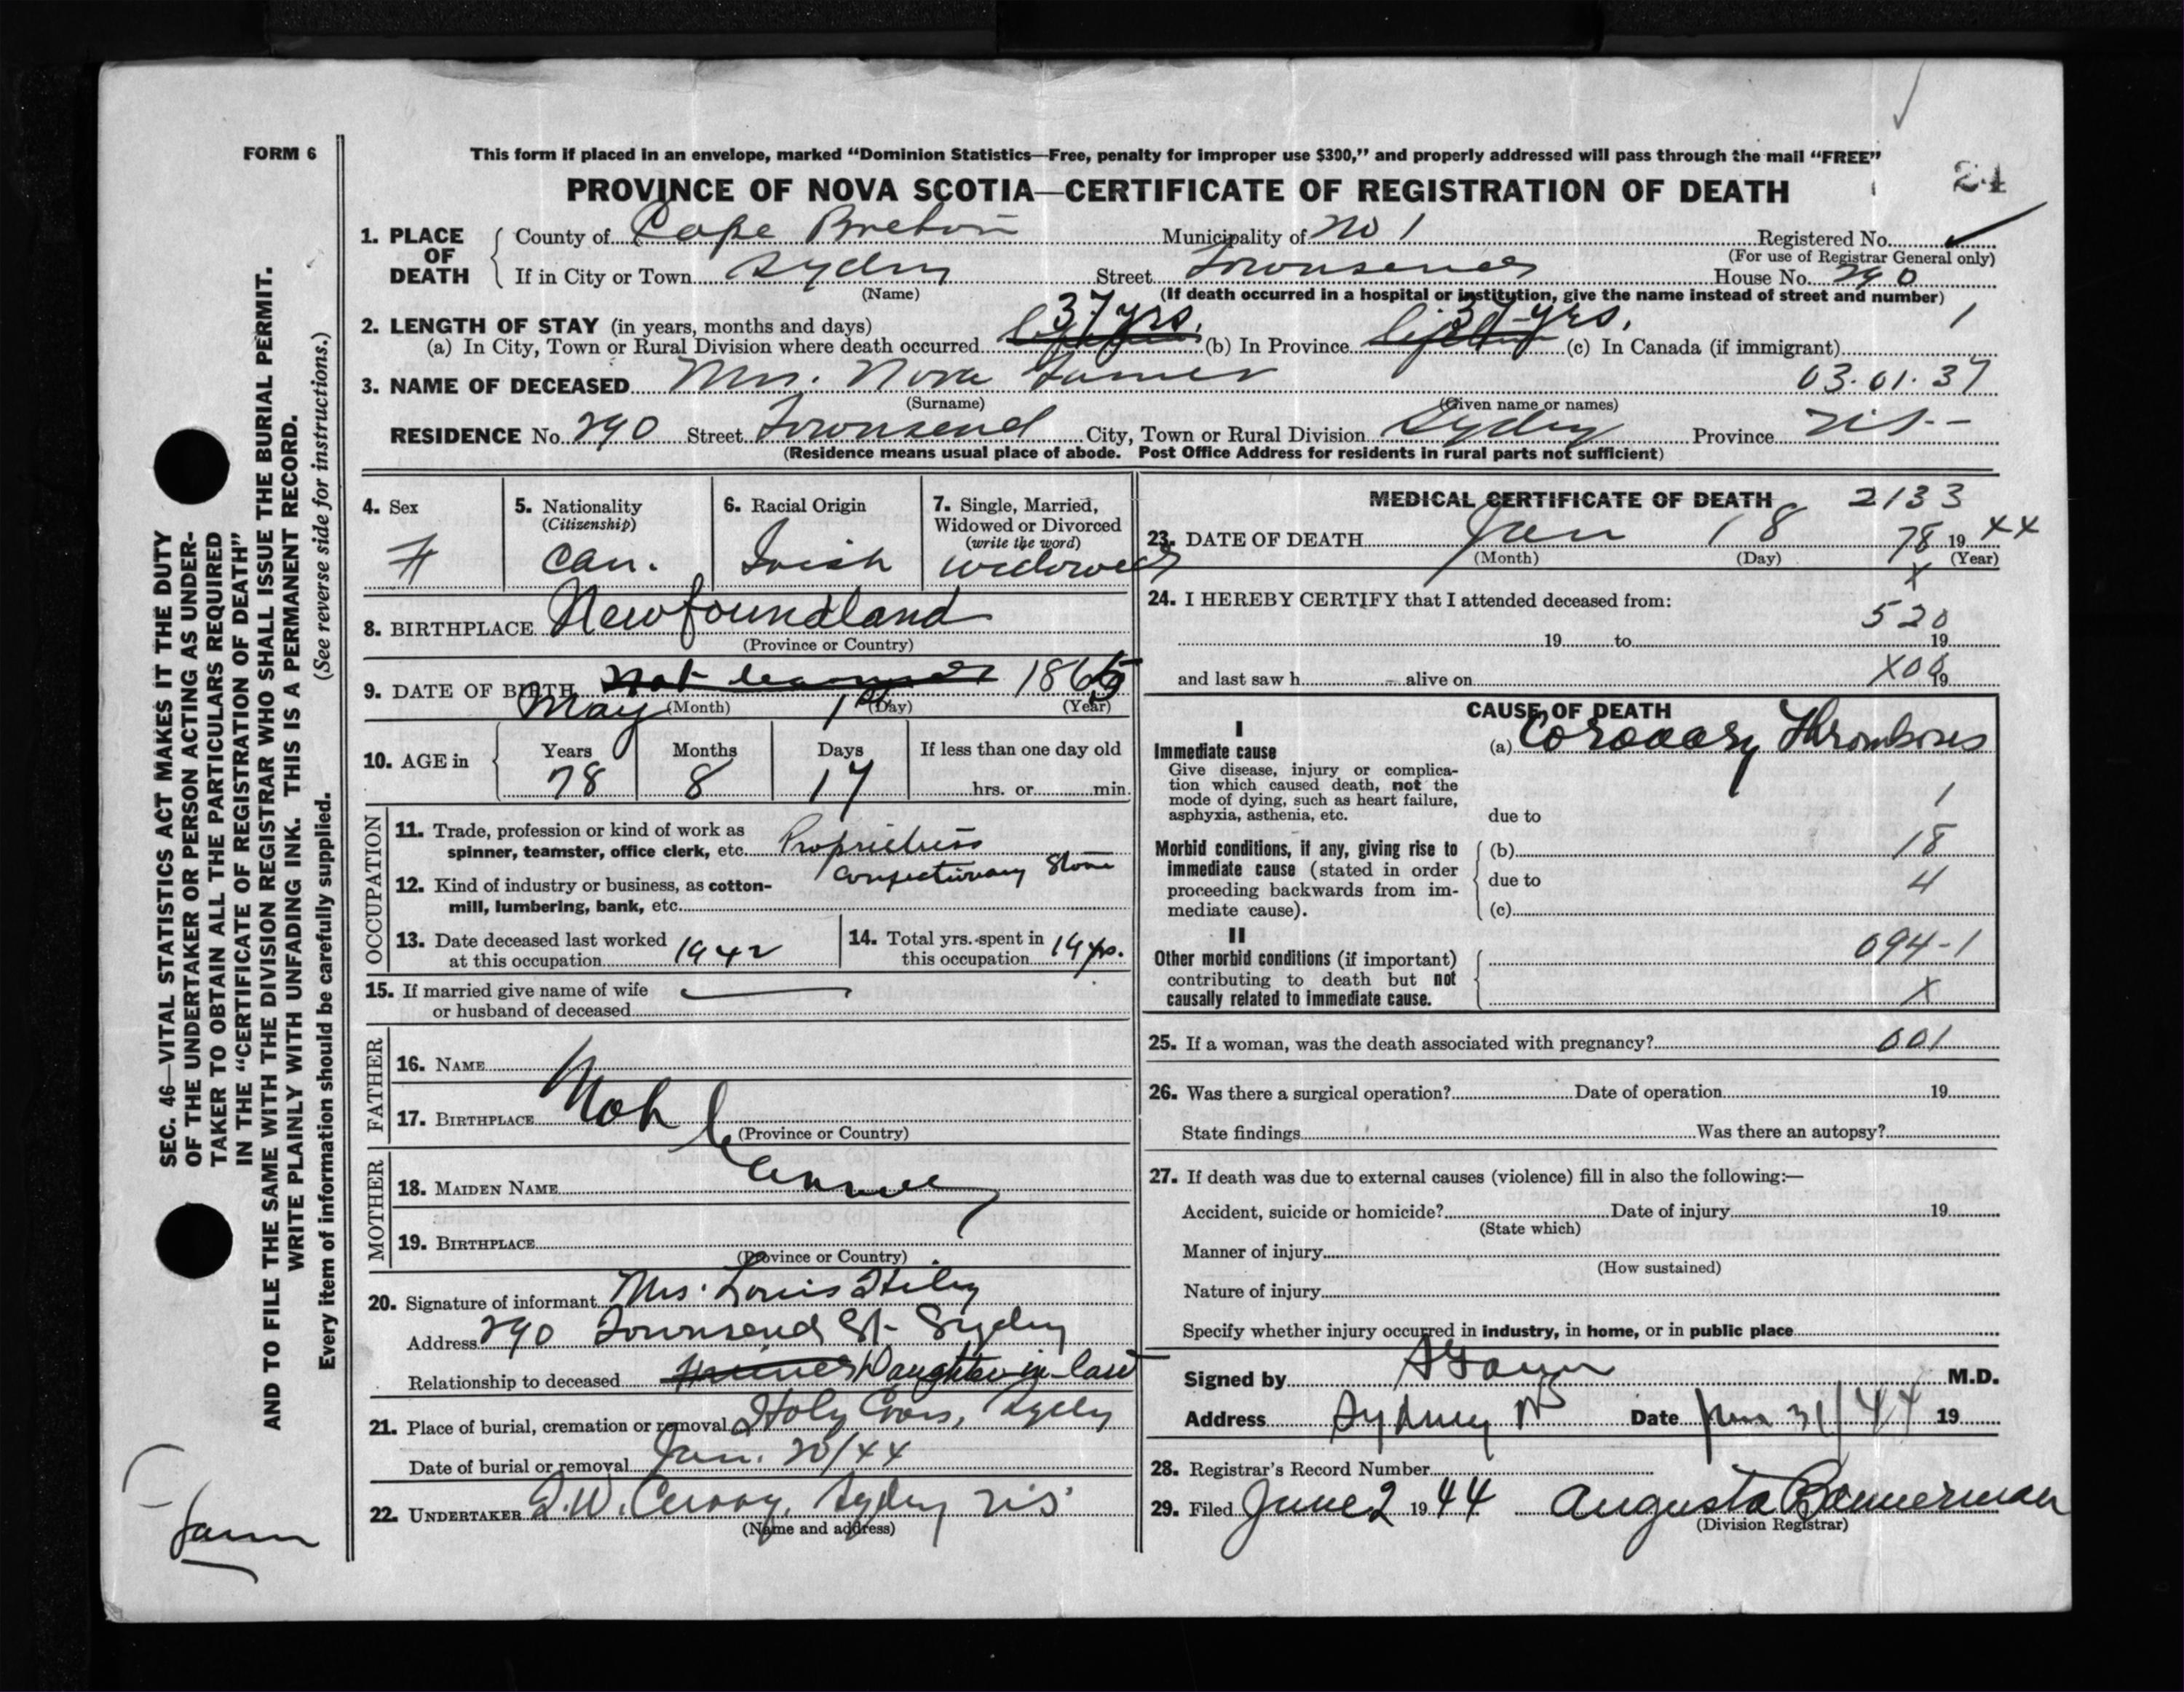 FORM 6
This form if placed in an envelope, marked “Dominion Statistics—Free, penalty for improper use $300,” and properly addressed will pass through the mail “FREE”
PROVINCE OF NOVA SCOTIA—CERTIFICATE OF REGISTRATION OF DEATH
24
1. PLACE OF DEATH County of Cape Breton Municipality of No 1 Registered No.
(For use of Registrar General only)
If in City or Town Sydney Street Townsend House No. 290
(Name) (If death occurred in a hospital or institution, give the name instead of street and number)
2. LENGTH OF STAY (in years, months and days) 37 yrs. 37 yrs. 1
(a) In City, Town or Rural Division where death occurred (b) In Province lifetime (c) In Canada (if immigrant)
3. NAME OF DECEASED Mrs. Nora 03.01.37
(Surname) (Given name or names)
RESIDENCE No. 290 Street Townsend City, Town or Rural Division Sydney Province N.S.
(Residence means usual place of abode. Post Office Address for residents in rural parts not sufficient)
4. Sex F
5. Nationality (Citizenship) Can.
6. Racial Origin Irish
7. Single, Married, Widowed or Divorced (write the word) widowed
8. BIRTHPLACE Newfoundland
(Province or Country)
9. DATE OF BIRTH 1865
May 1st
(Month) (Day) (Year)
10. AGE in Years 78 Months 8 Days 17 If less than one day old hrs. or min.
OCCUPATION
11. Trade, profession or kind of work as spinner, teamster, office clerk, etc. Proprietress
12. Kind of industry or business, as cotton-mill, lumbering, bank, etc. Confectionary Store
13. Date deceased last worked at this occupation 1942
14. Total yrs. spent in this occupation 19 yrs.
15. If married give name of wife or husband of deceased
FATHER
16. NAME
17. BIRTHPLACE Not
(Province or Country)
MOTHER
18. MAIDEN NAME
19. BIRTHPLACE
(Province or Country)
20. Signature of informant Mrs. Louis
Address 290 Townsend St. Sydney
Relationship to deceased Daughter-in-law
21. Place of burial, cremation or removal Holy Cross, Sydney
Date of burial or removal Jan. 20/44
22. UNDERTAKER Sydney N.S.
(Name and address)
MEDICAL CERTIFICATE OF DEATH 2133
23. DATE OF DEATH Jan 18 78 1944
(Month) (Day) (Year)
X
24. I HEREBY CERTIFY that I attended deceased from:
520
19 to 19
and last saw h alive on 19
X00
CAUSE OF DEATH
I
Immediate cause (a) Coronary Thrombosis
Give disease, injury or complication which caused death, not the mode of dying, such as heart failure, asphyxia, asthenia, etc.
1
due to
Morbid conditions, if any, giving rise to immediate cause (stated in order proceeding backwards from immediate cause).
(b) 18
due to 4
(c)
II
Other morbid conditions (if important) contributing to death but not causally related to immediate cause.
094-1
X
25. If a woman, was the death associated with pregnancy? 001
26. Was there a surgical operation? Date of operation 19
State findings Was there an autopsy?
27. If death was due to external causes (violence) fill in also the following:—
Accident, suicide or homicide? Date of injury 19
(State which)
Manner of injury
(How sustained)
Nature of injury
Specify whether injury occurred in industry, in home, or in public place
Signed by M.D.
Address Sydney NS Date 31/44 19
28. Registrar's Record Number
29. Filed June 2 1944 Augusta Bannerman
(Division Registrar)
SEC. 46—VITAL STATISTICS ACT MAKES IT THE DUTY
OF THE UNDERTAKER OR PERSON ACTING AS UNDER-
TAKER TO OBTAIN ALL THE PARTICULARS REQUIRED
IN THE “CERTIFICATE OF REGISTRATION OF DEATH”
AND TO FILE THE SAME WITH THE DIVISION REGISTRAR WHO SHALL ISSUE THE BURIAL PERMIT.
WRITE PLAINLY WITH UNFADING INK. THIS IS A PERMANENT RECORD.
Every item of information should be carefully supplied. (See reverse side for instructions.)